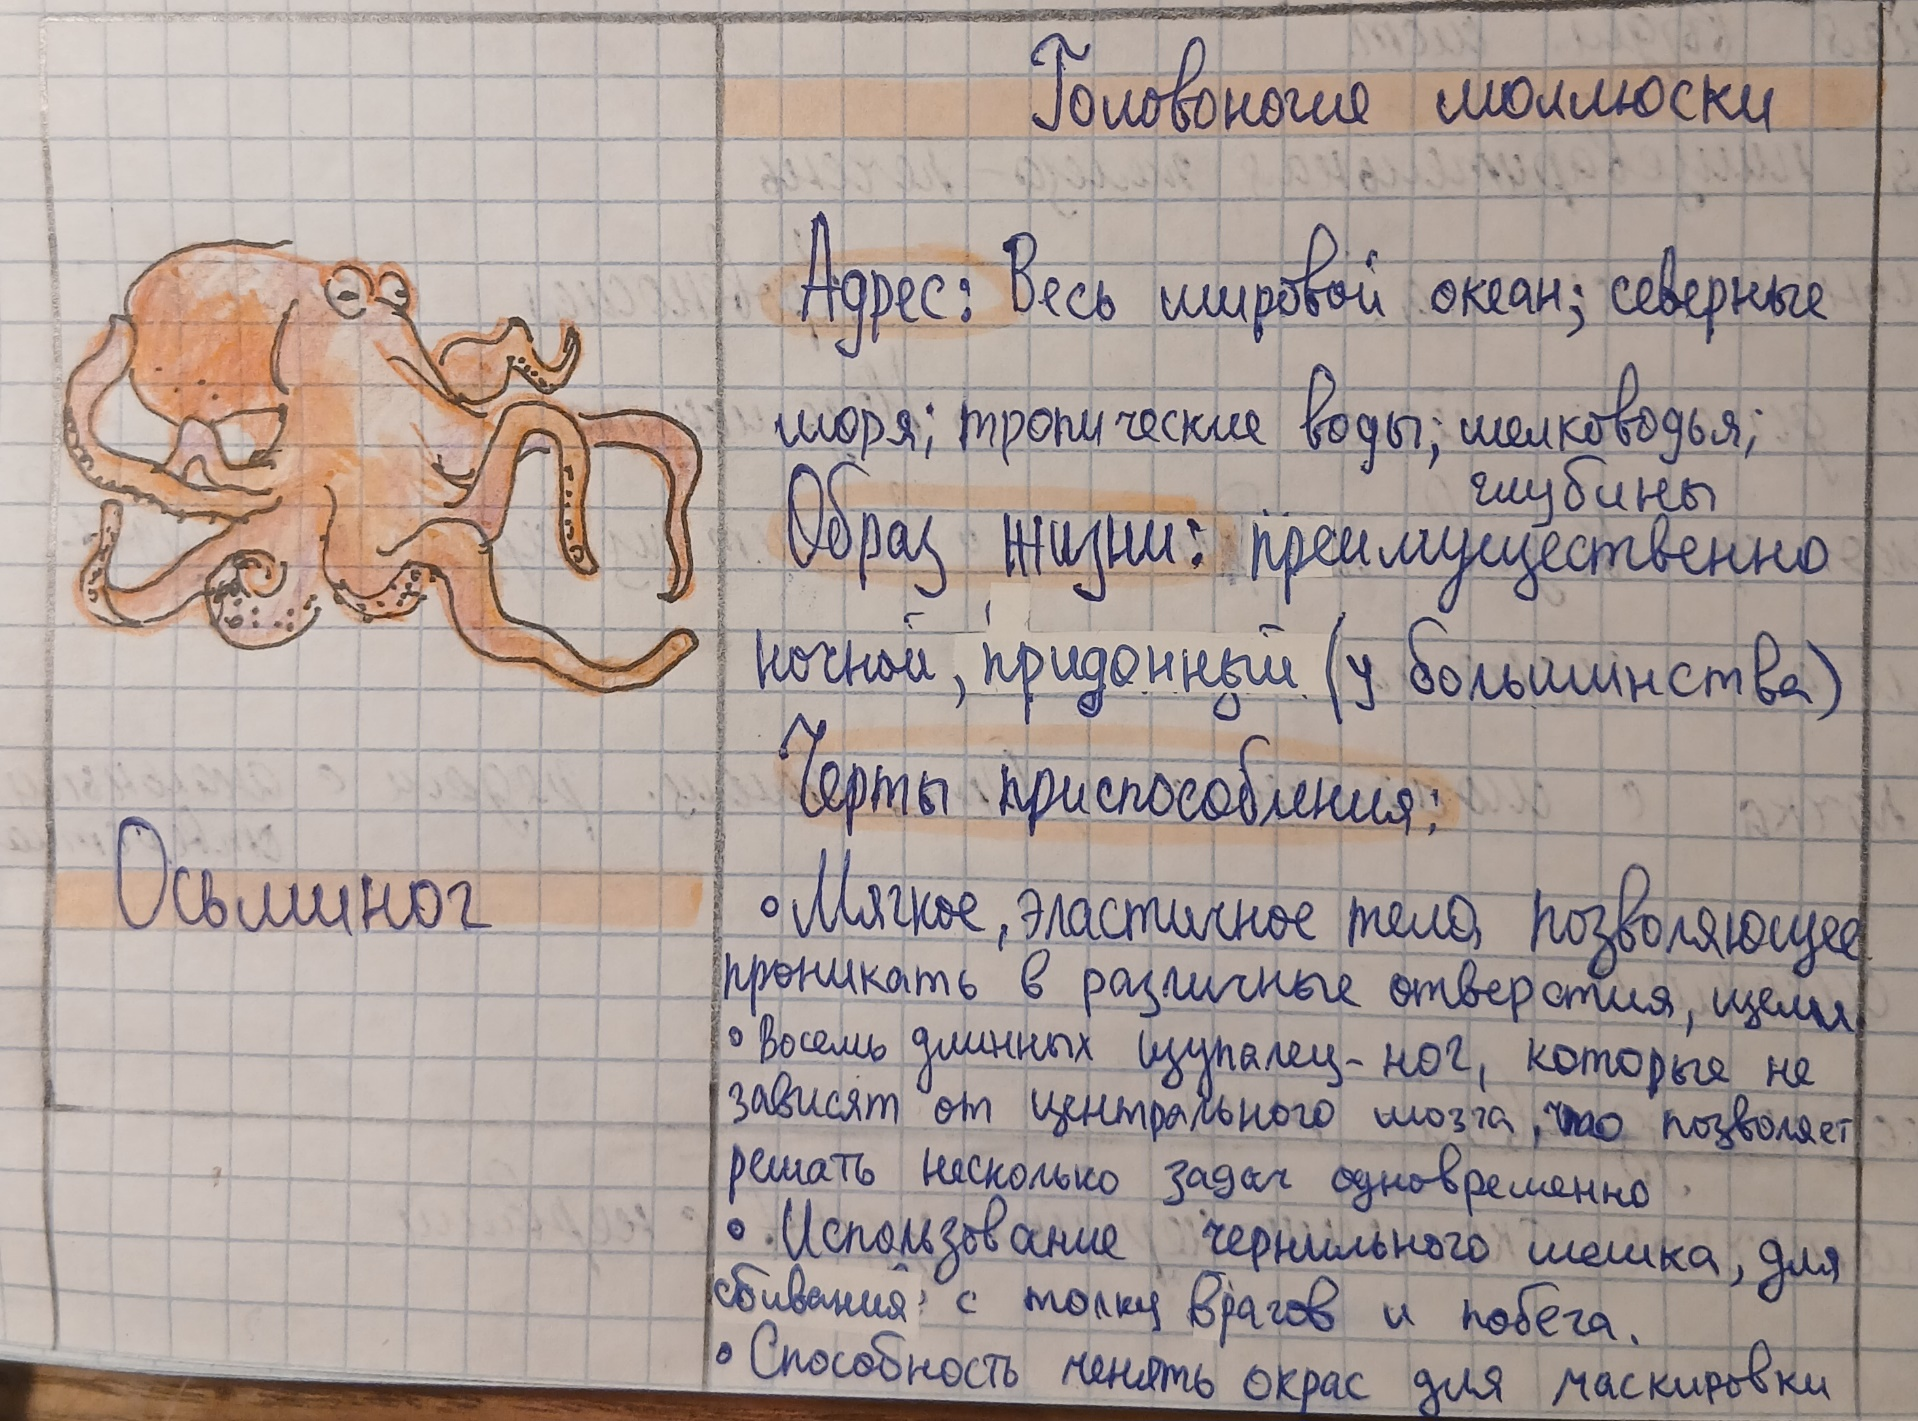 Головоногие моллюски
Адрес: Весь мировой океан; северные
моря; тропические воды; мелководья;
глубины
Образ жизни: преимущественно
ночной, придонный (у большинства)
Черты приспособления:
Осьминог
• Мягкое, эластичное тело, позволяющее
проникать в различные отверстия, щели
• Восемь длинных щупалец-ног, которые не
зависят от центрального мозга, что позволяет
решать несколько задач одновременно.
• Использование чернильного мешка, для
сбивания с толку врагов и побега.
• Способность менять окрас для маскировки